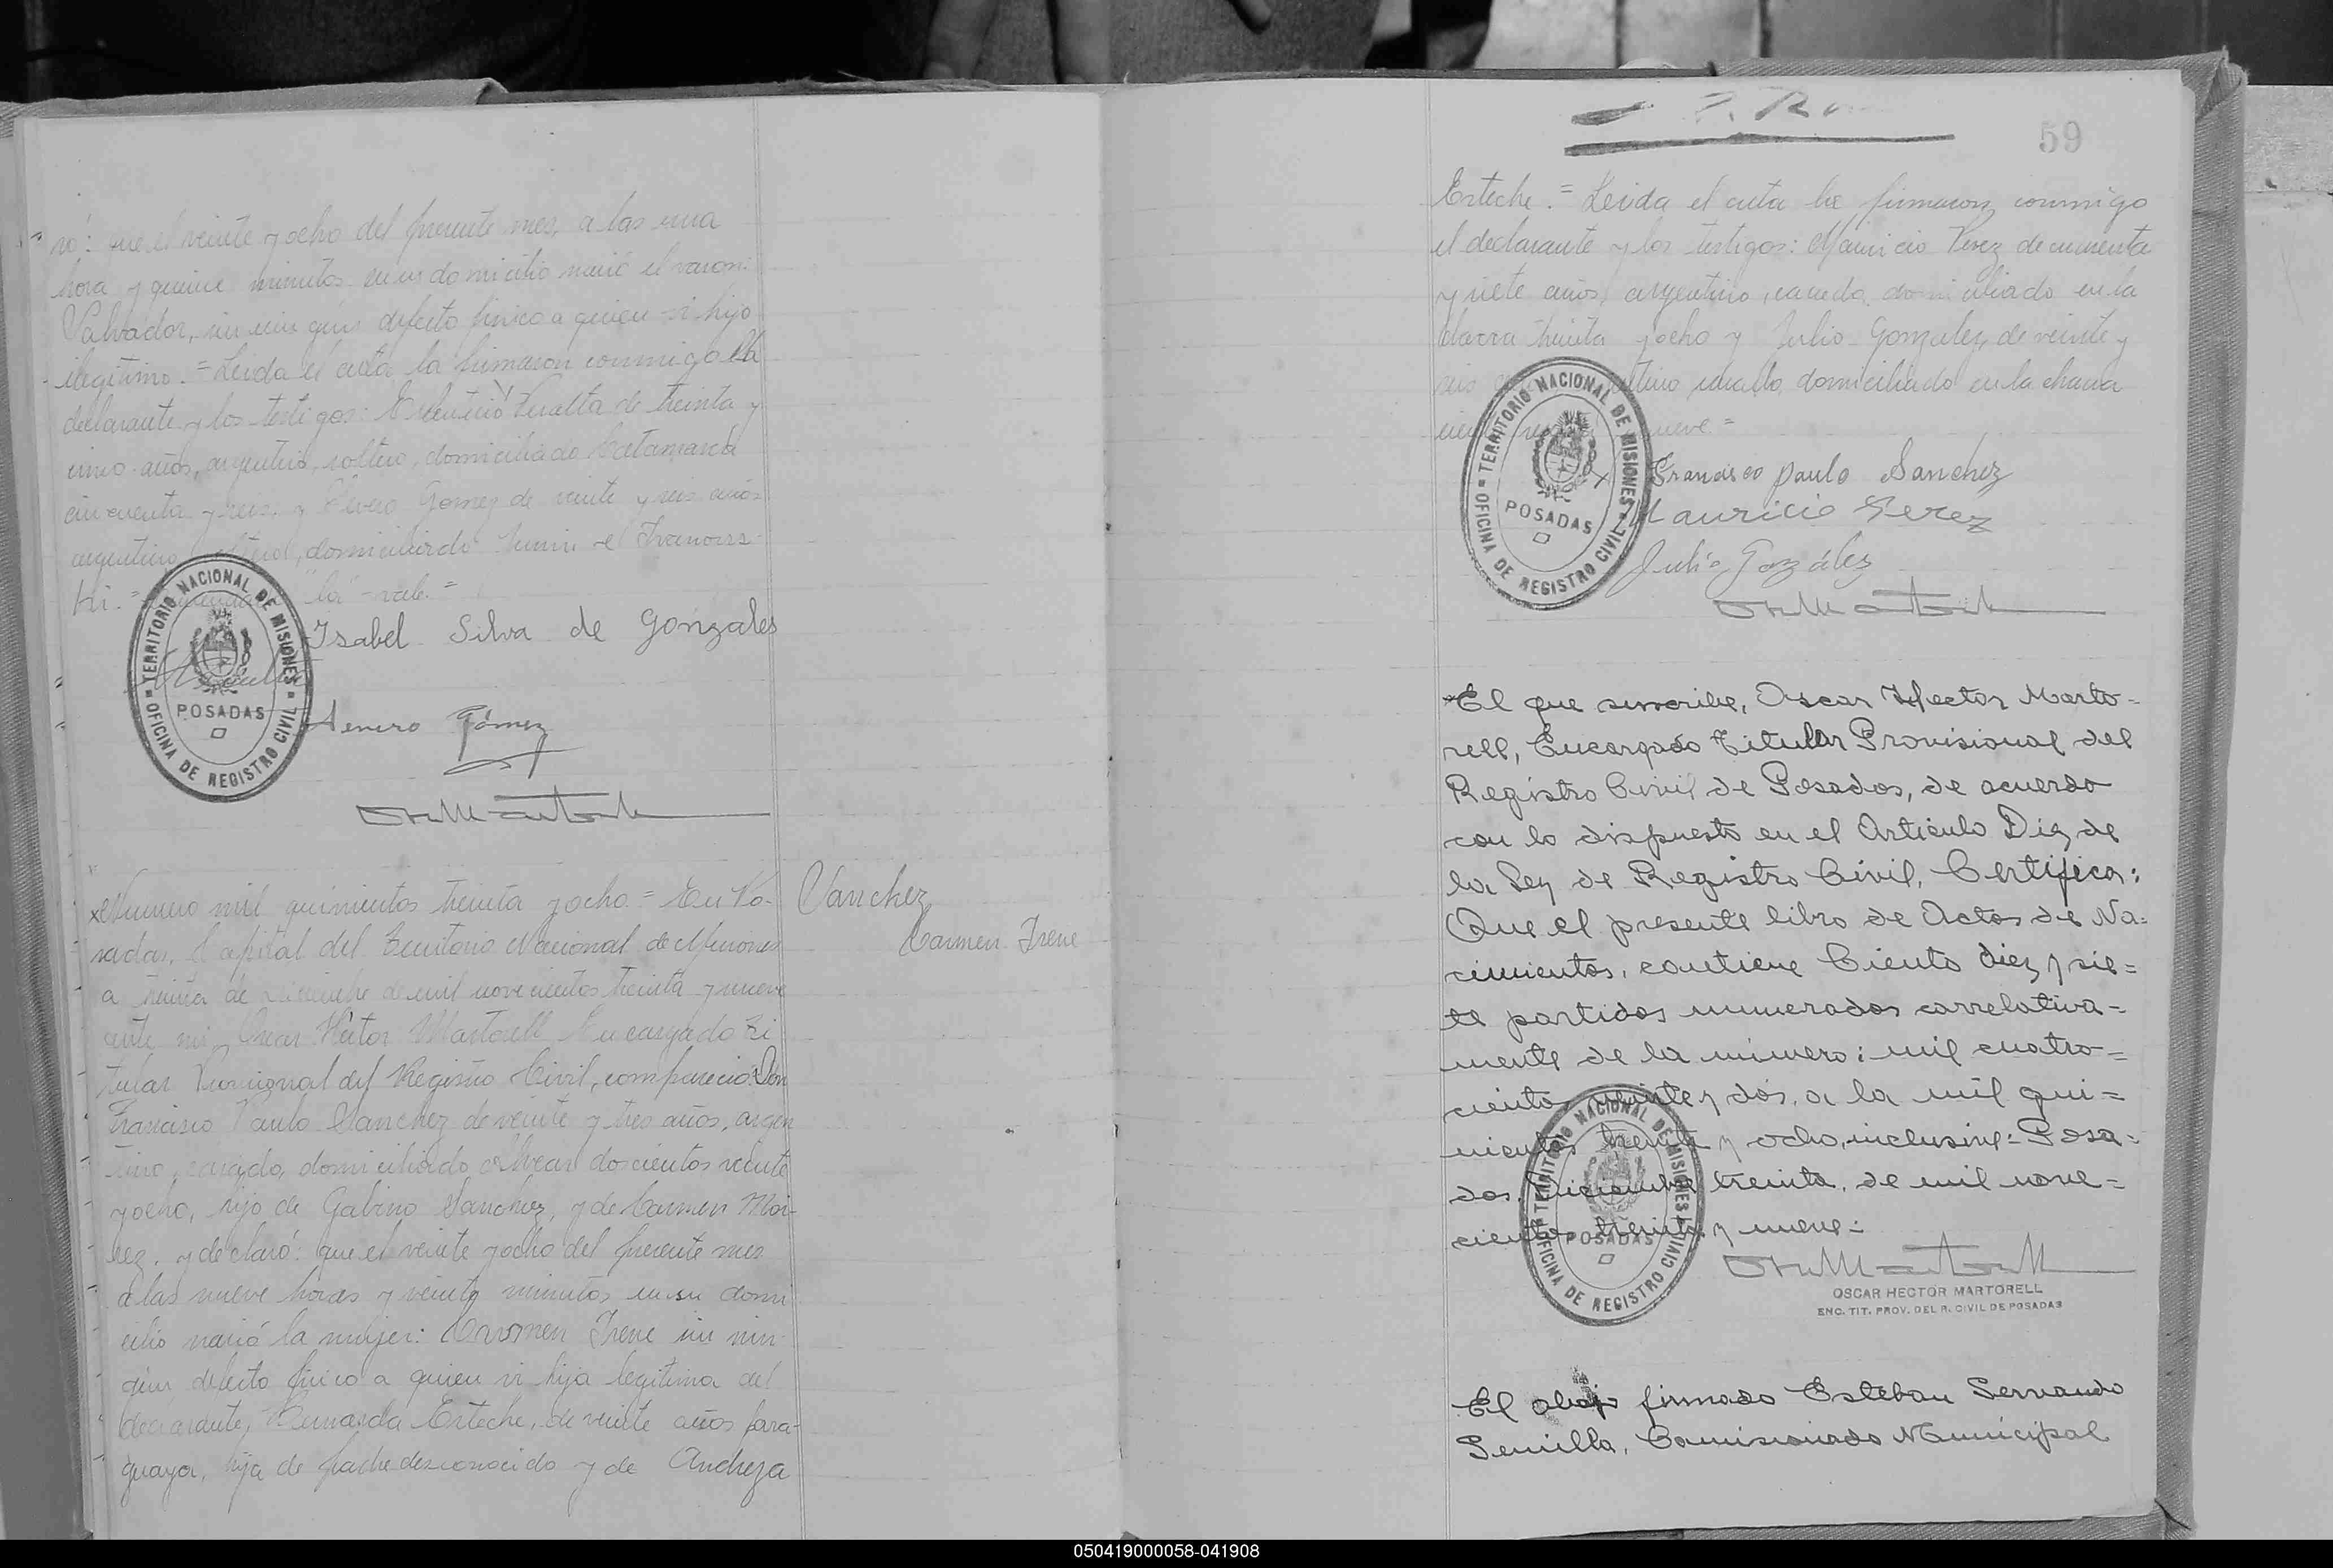 ró: que el veinte y ocho del presente mes, a las una
hora y quince minutos en su domicilio nació el varon:
Salvador, sin ningún defecto físico a quien vi hijo
ilegítimo.= Leida el acta la firmaron conmigo la
declarante y los testigos: Peralta de treinta y
cinco años, argentino, soltero, domiciliado Catamarca
cincuenta y seis, y Gomez de veinte y seis años
argentino, soltero, domiciliado Junin e Ivanows
ki.= "la" vale.=
Isabel Silva de Gonzales
Gómez
TERRITORIO NACIONAL DE MISIONES
POSADAS
OFICINA DE REGISTRO CIVIL
Numero mil quinientos treinta y ocho = En Po-
sadas, Capital del Territorio Nacional de Misiones
a treinta de Diciembre de mil novecientos treinta y nueve
ante mi, Oscar Héctor Martorell Encargado Ti
tular Provisional del Registro Civil, compareció: Don
Francisco Paulo Sanchez de veinte y tres años, argen
tino, casado, domiciliado Alvear doscientos veinte
y ocho, hijo de Gabino Sanchez, y de Carmen Moi-
rez. y declaró: que el veinte y ocho del presente mes
a las nueve horas y veinte minutos en su domi
cilio nació la mujer: Carmen Irene sin nin-
gún defecto físico a quien vi hija legítima del
declarante, Bernarda Esteche, de veinte años para-
guaya, hija de padre desconocido y de Andreza
Sanchez,
Carmen Irene
59
Esteche.= Leida el acta la firmaron conmigo
el declarante y los testigos: Mauricio Perez de cuarenta
y siete años, argentino, casado, domiciliado en la
chacra treinta y ocho y Julio Gonzalez, de veinte y
seis domiciliado en la chacra
nueve =
Francisco paulo Sanchez
Mauricio Perez
Julio González
TERRITORIO NACIONAL DE MISIONES
POSADAS
OFICINA DE REGISTRO CIVIL
El que suscribe, Oscar Hector Marto-
rell, Encargado Titular Provisional del
Registro Civil de Posadas, de acuerdo
con lo dispuesto en el Articulo Diez de
la Ley de Registro Civil, Certifica:
Que el presente libro de Actas de Na-
cimientos, contiene Ciento diez y sie=
te partidas numeradas correlativa-
mente de la número: mil cuatro-
cientos veinte y dós, a la mil qui-
nientos treinta y ocho, inclusive: Posa-
das, Diciembre treinta, de mil nove-
cientos treinta y nueve:
TERRITORIO NACIONAL DE MISIONES
POSADAS
OFICINA DE REGISTRO CIVIL
OSCAR HECTOR MARTORELL
ENC. TIT. PROV. DEL R. CIVIL DE POSADAS
El abajo firmado Esteban Servando
Semilla, Comisionado Municipal
050419000058-041908